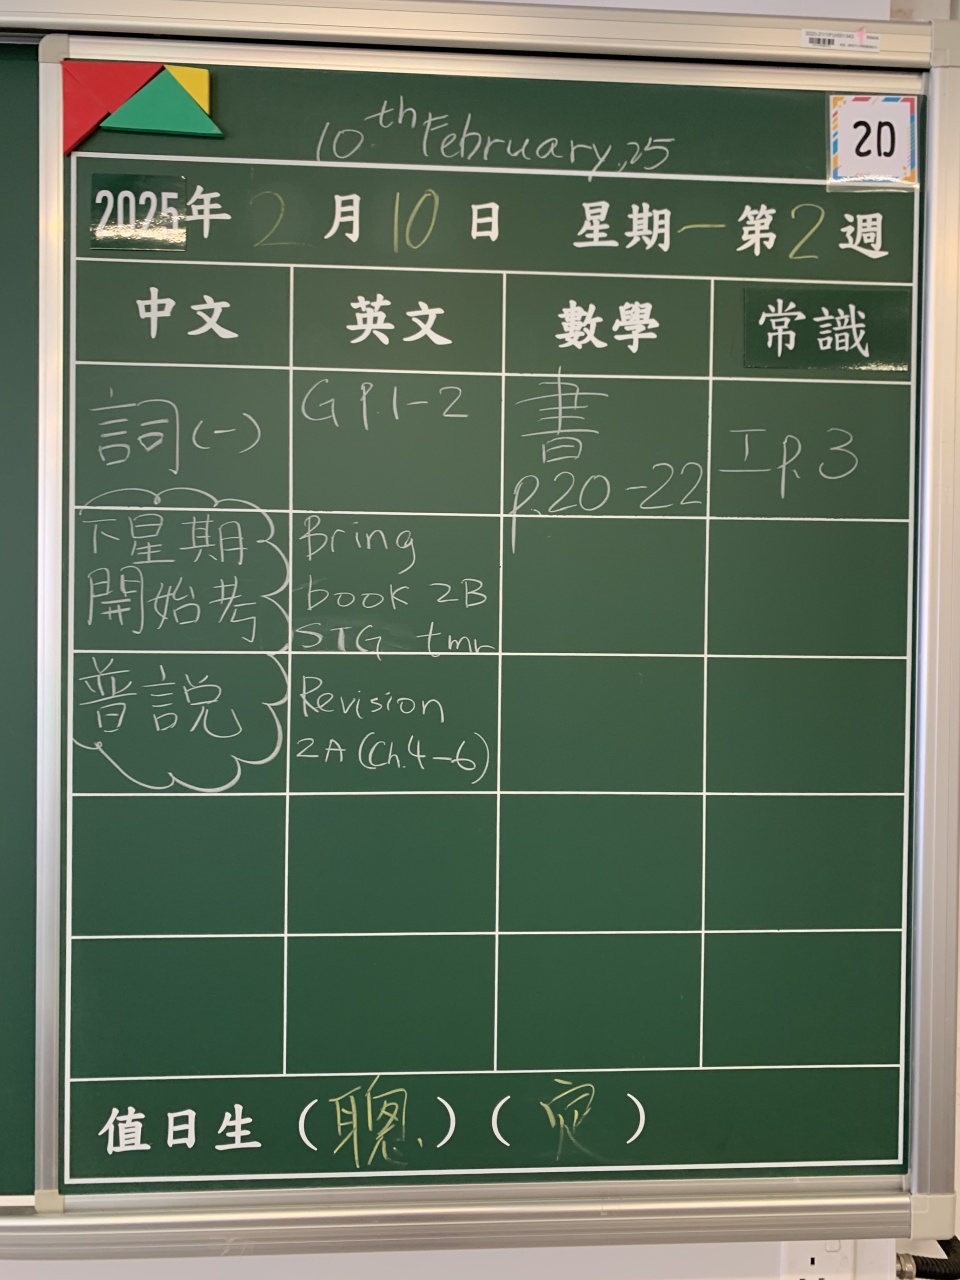 10th February, 25
2D
2025年 2 月 10 日 星期一 第 2 週
中文 英文 數學 常識
詞(一)
G P.1-2
書
p.20-22
工p.3
下星期
開始考
普說
Bring
book 2B
STG tmr
Revision
2A (Ch.4-6)
值日生 (聰) (定)